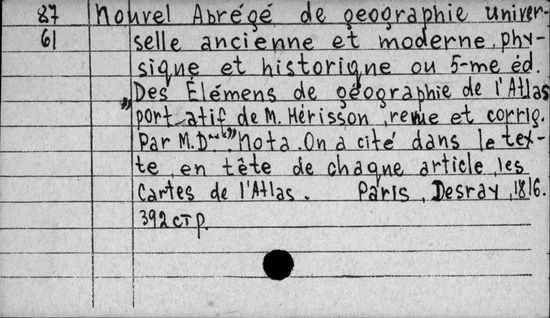 87 Nouvel Abrégé de geographie univer-
61 selle ancienne et moderne, phy-
sique et historique ou 5-me éd.
„Des Élémens de géographie de l'Atlas
portatif de M. Hérisson, revue et corrig.
Par M.D***" Nota. On a cité dans le tex-
te, en tête de chaque article, les
Cartes de l'Atlas. Paris, Desray, 1816.
392 стр.